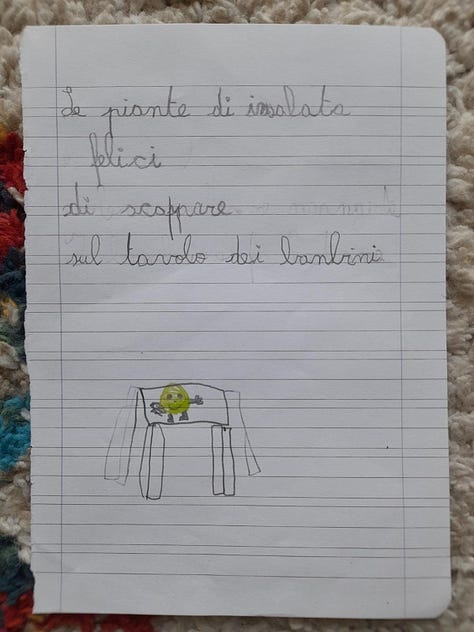 Le piante di insalata
felici
di scappare
sul tavolo dei banbini